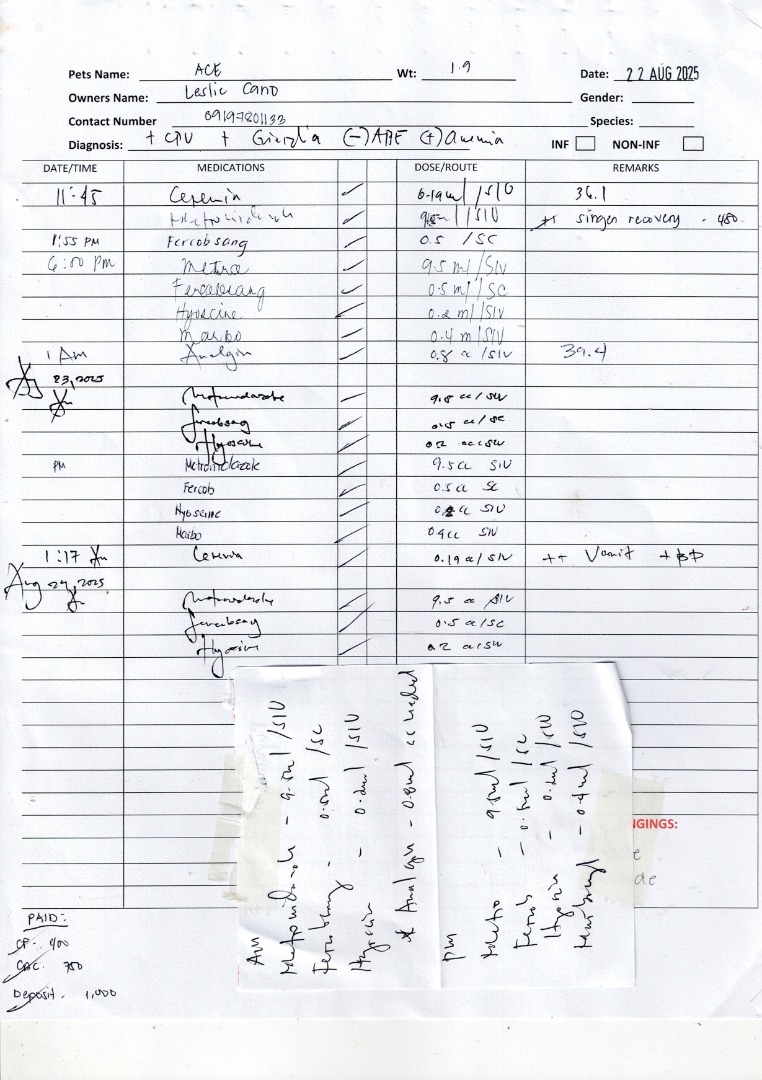 Pets Name: ACE Wt: 1.9 Date: 22 AUG 2025
Owners Name: Leslie Cano Gender:
Contact Number 09197201133 Species:
Diagnosis: + CPV + Giardia (-) ABE (+) anemia INF NON-INF
DATE/TIME MEDICATIONS DOSE/ROUTE REMARKS
11:45 Cerenia 0.19ml /SIV 36.1
Metronidazole /SIV singen recovery - 480
1:55 PM Fercobsang 0.5 /SC
6:00 PM Metro 9.5 ml /SIV
Fercobsang 0.5 ml /SC
Hyoscine 0.2 ml /SIV
Marbo 0.4 ml /SIV
1 Am Analgin 0.8 cc /SIV 39.4
23, 2025
Metronidazole 9.5 cc / SIV
Fercobsang 0.5 cc / SC
Hyoscine 0.2 cc / SIV
PM Metronidazole 9.5 cc SIV
Fercob 0.5 cc SC
Hyoscine 0.2 cc SIV
Marbo 0.4 cc SIV
1:17 Cerenia 0.19 cc / SIV ++ Vomit
Aug 24, 2025
Metronidazole 9.5 cc /SIV
Fercobsang 0.5 cc / SC
Hyoscine 0.2 cc / SIV
Am
Metronidazole - 9.5ml /SIV
Fercobsang - 0.5ml /SC
Hyoscin - 0.2ml /SIV
* Analgin - 0.8ml as needed
PM
Metro - 9.5ml /SIV
Fercob - 0.5ml /SC
Hyoscin - 0.2ml /SIV
- 0.4ml /SIV
NGINGS:
e
de
PAID:
CP - 400
CBC. 750
Deposit. 1,000